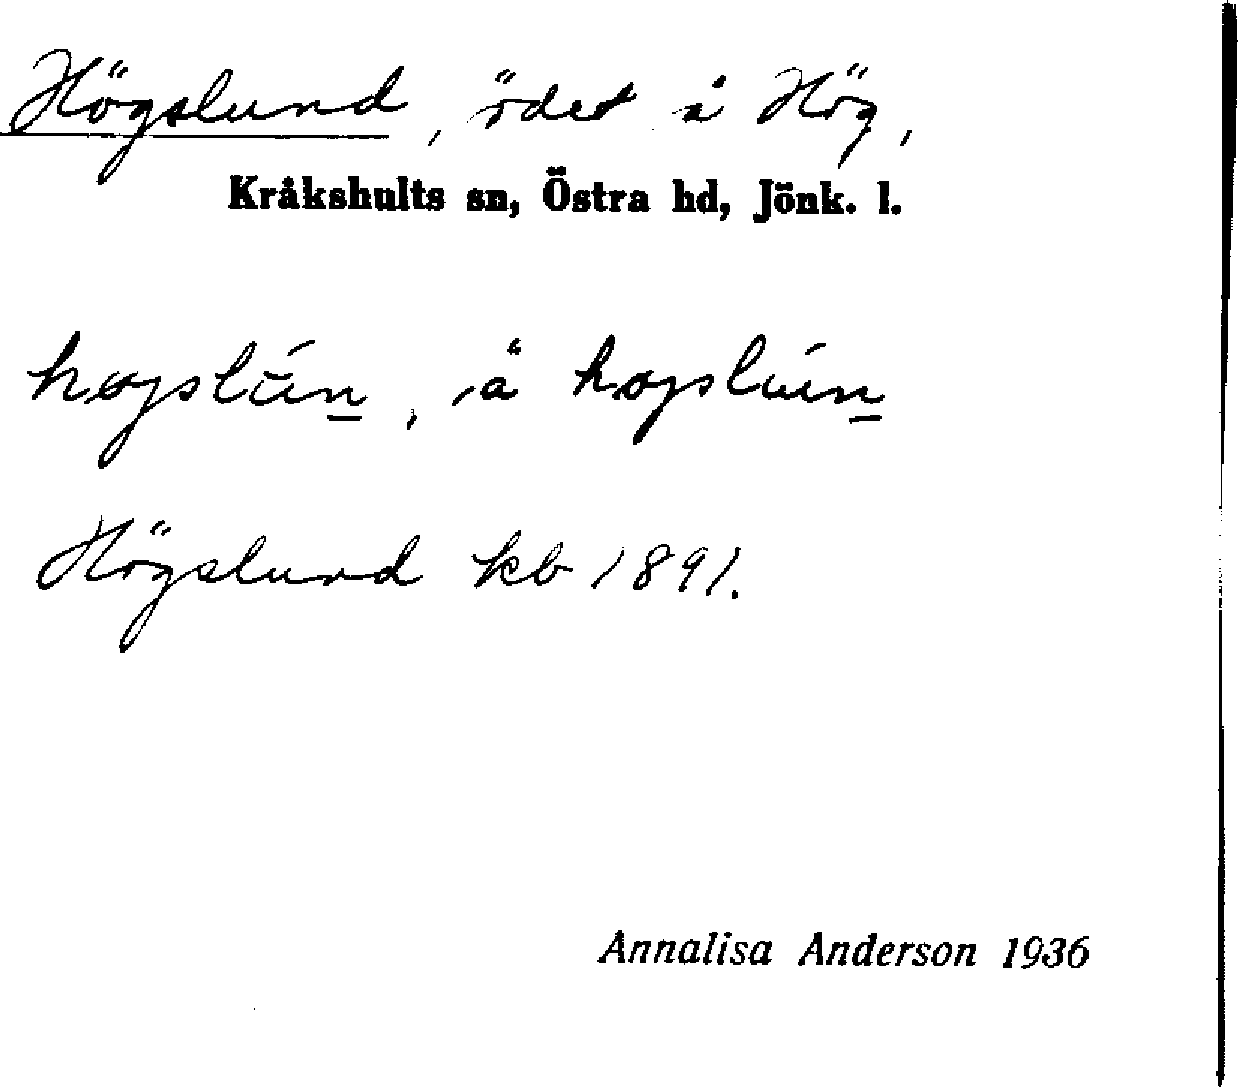 Högslund, ödet å Hög,
Kråkshults sn, Östra hd, Jönk. l.
å
Högslund kb 1891.
Annalisa Anderson 1936